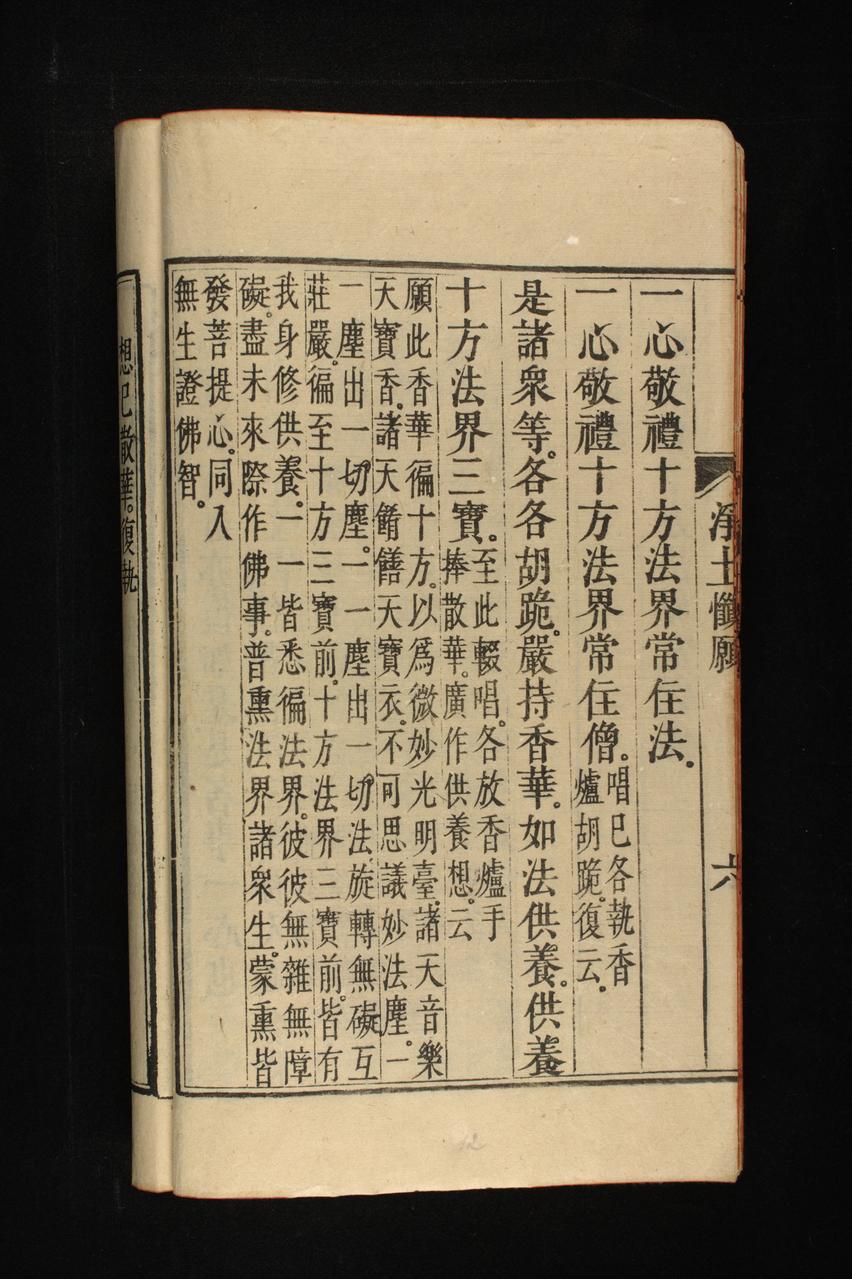 淨土懺願
六
一心敬禮十方法界常住法。
一心敬禮十方法界常住僧。唱已各執香
爐胡跪。復云。
是諸衆等。各各胡跪。嚴持香華。如法供養。供養
十方法界三寶。至此輟唱。各放香爐手
捧散華。廣作供養想。云
願此香華徧十方。以爲微妙光明臺。諸天音樂
天寶香。諸天餚饍天寶衣。不可思議妙法塵。一
一塵出一切塵。一一塵出一切法。旋轉無礙互
莊嚴。徧至十方三寶前。十方法界三寶前。皆有
我身修供養。一一皆悉徧法界。彼彼無雜無障
礙。盡未來際作佛事。普熏法界諸衆生。蒙熏皆
發菩提心。同入
無生證佛智。
想已散華。復執